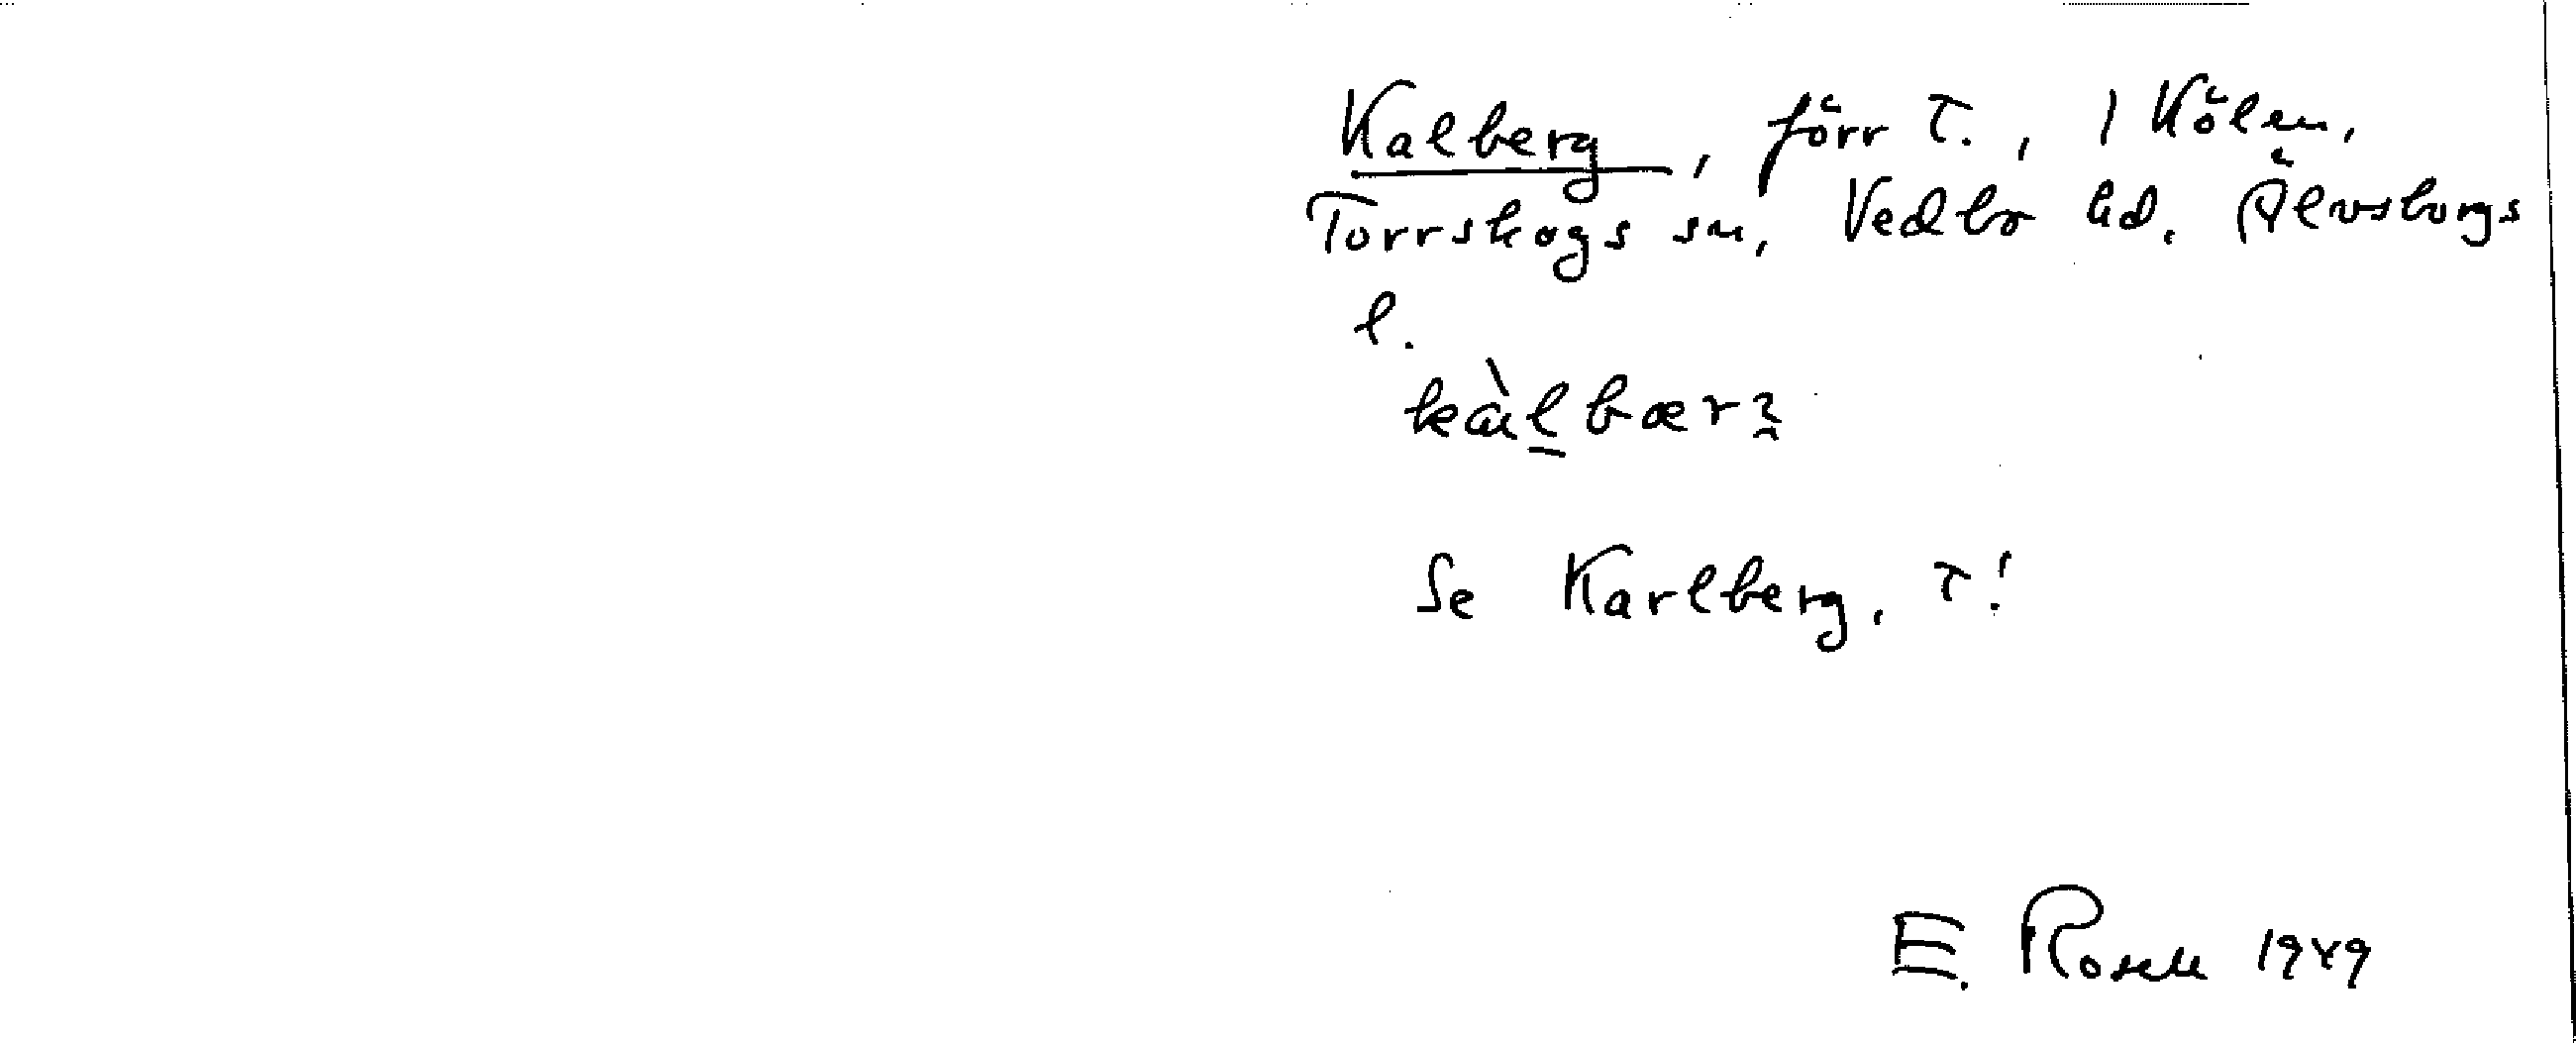 Kalberg, förr T., 1 Kölen,
Torrskogs sn, Vedbo hd. Älvsborgs
l.
kàlbærʒ
Se Karlberg, T!
E. Rosell 1949